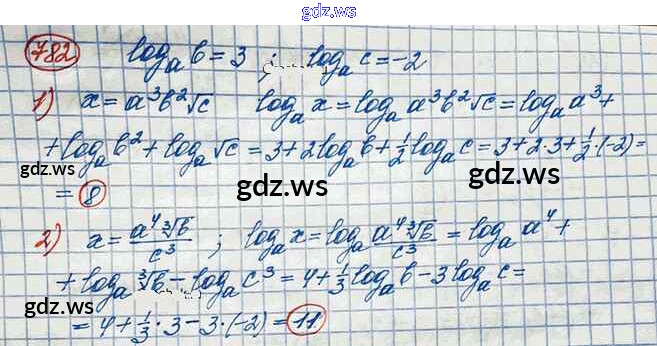 gdz.ws
gdz.ws
782 log_a b = 3 ; log_a c = -2
1) x = a³b²√c log_a x = log_a a³b²√c = log_a a³ +
+ log_a b² + log_a √c = 3 + 2log_a b + 1/2 log_a c = 3 + 2·3 + 1/2·(-2) =
gdz.ws gdz.ws gdz.ws
= 8
2) x = a⁴∛b/c³ ; log_a x = log_a a⁴∛b/c³ = log_a a⁴ +
+ log_a ∛b - log_a c³ = 4 + 1/3 log_a b - 3log_a c =
gdz.ws gdz.ws gdz.ws
= 4 + 1/3·3 - 3·(-2) = 11